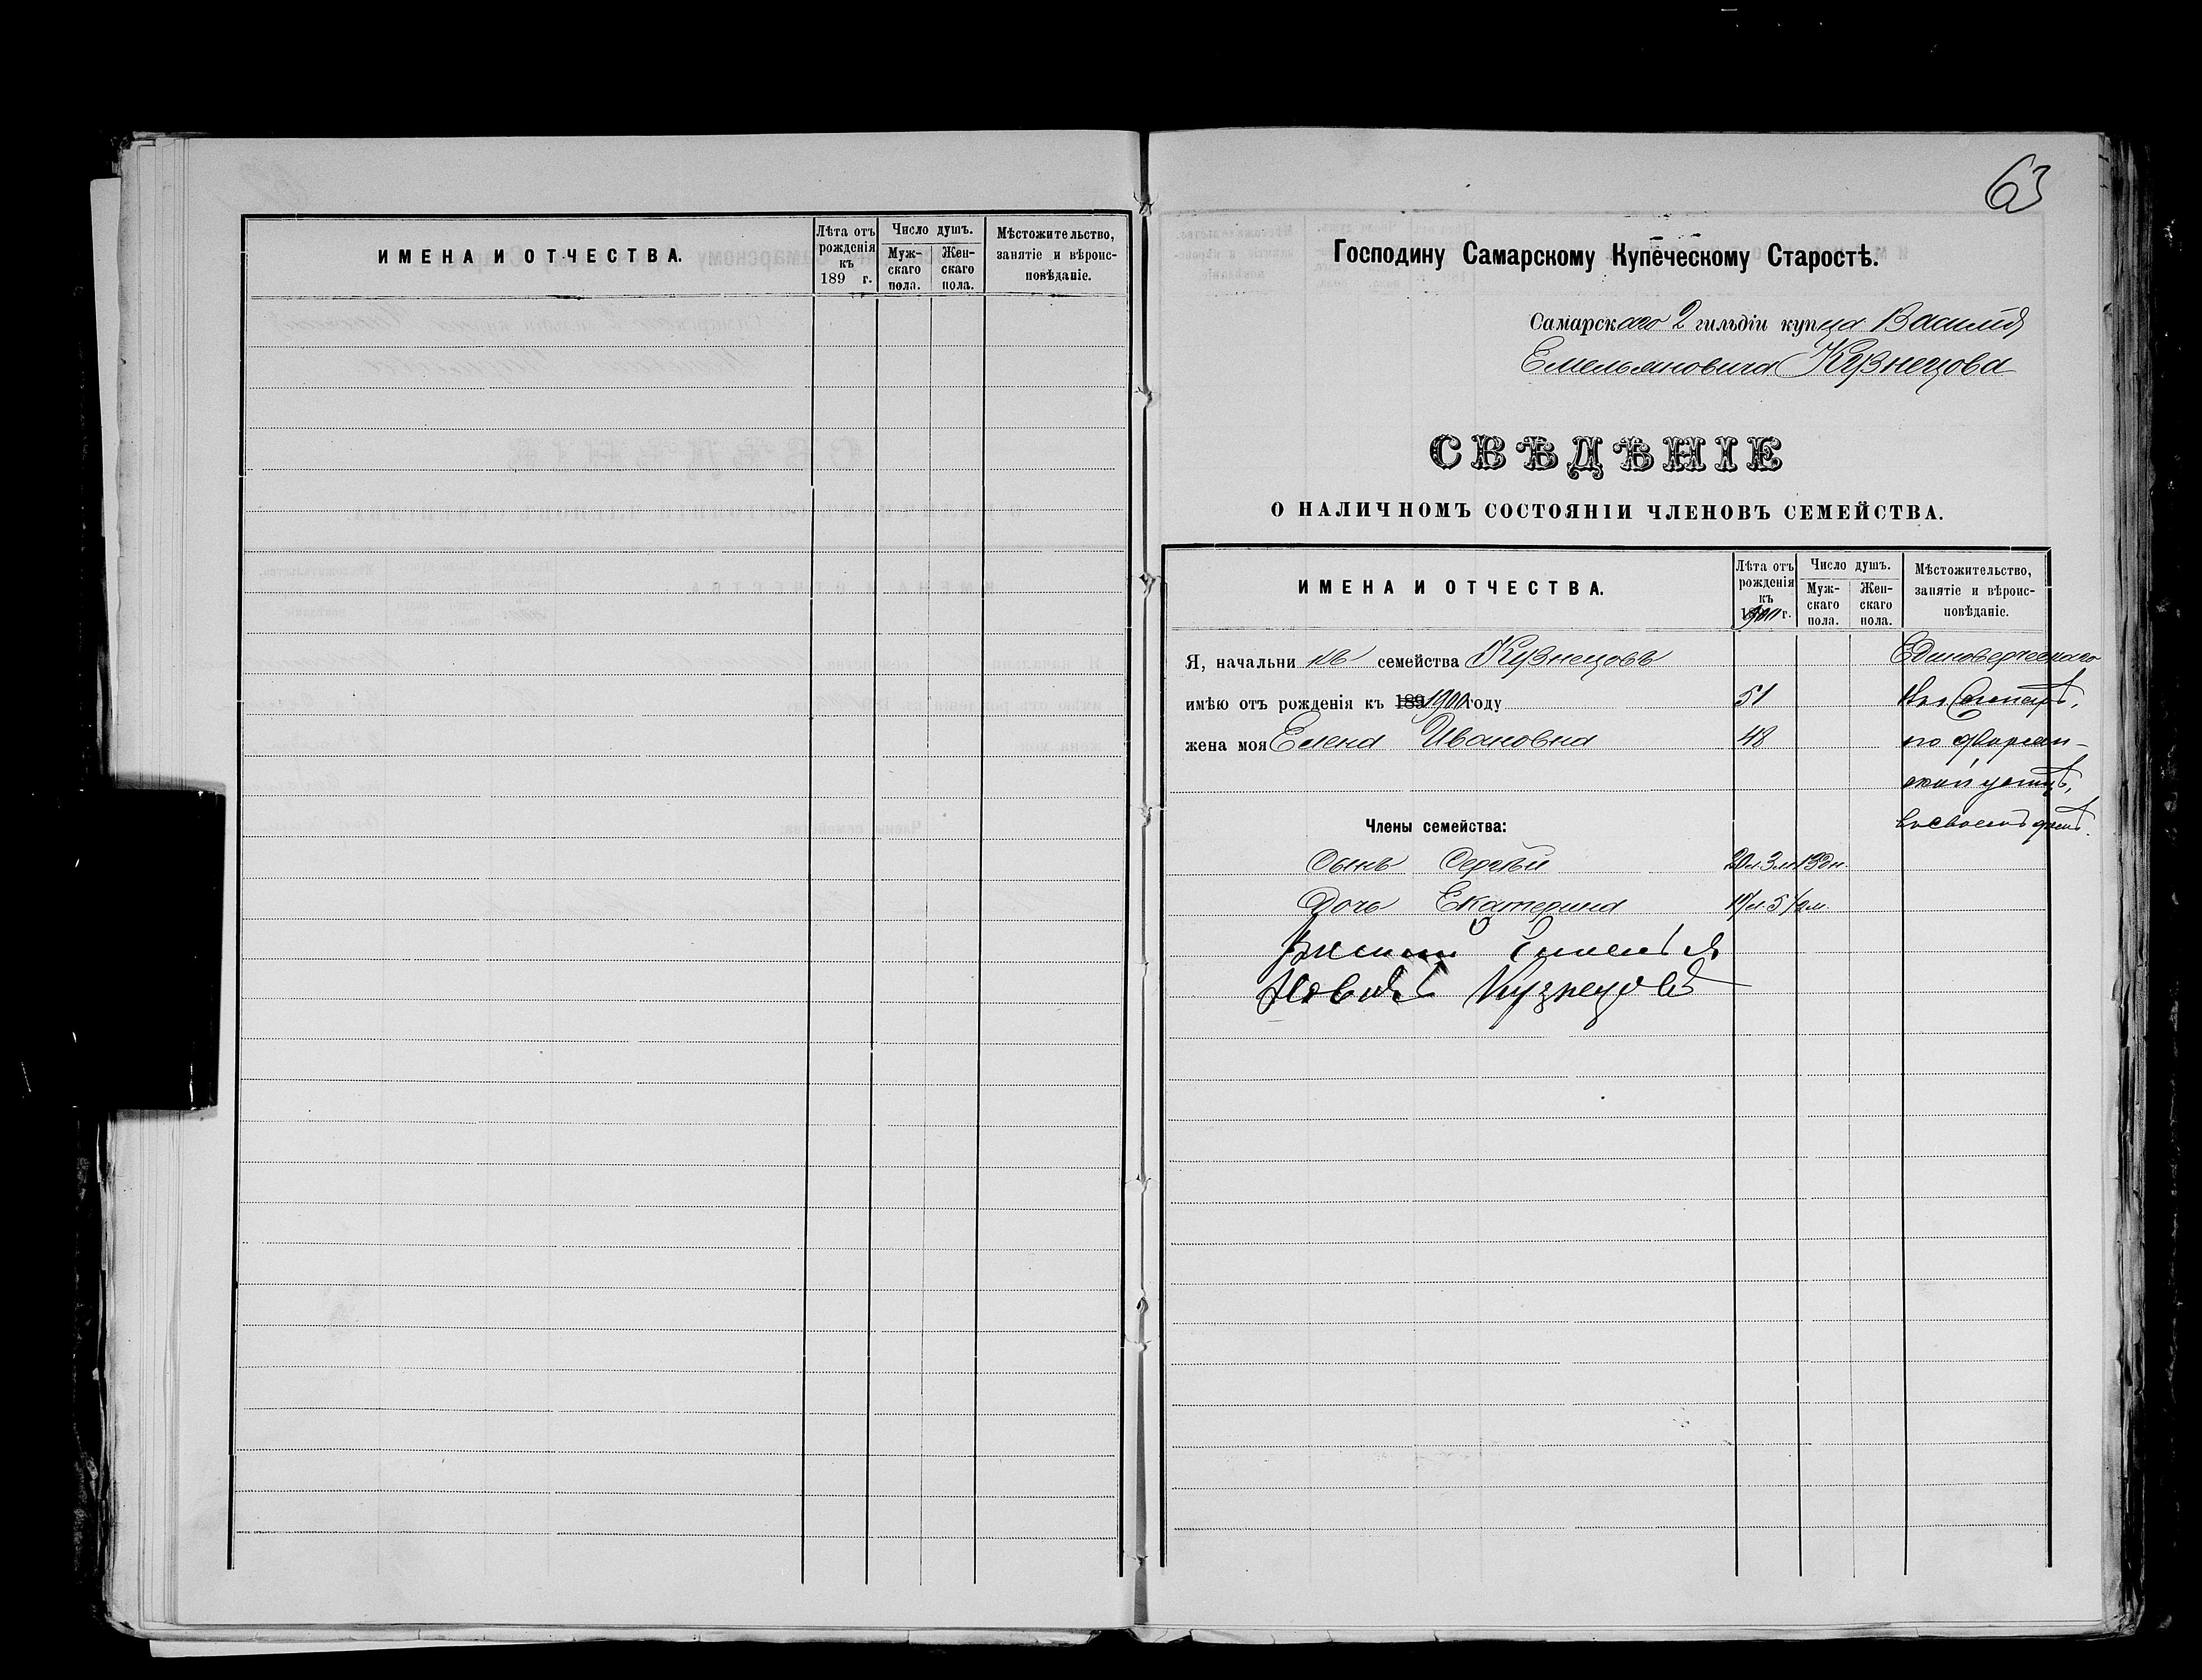 ИМЕНА И ОТЧЕСТВА.
Лѣта отъ рожденія къ 189 г.
Число душъ.
Мужскаго пола.
Женскаго пола.
Мѣстожительство, занятіе и вѣроисповѣданіе.
63
Господину Самарскому Купеческому Старостѣ.
Самарскаго 2 гильдіи купца Василія
Емельяновича Кузнецова
СВѢДѢНІЕ
О НАЛИЧНОМЪ СОСТОЯНІИ ЧЛЕНОВЪ СЕМЕЙСТВА.
ИМЕНА И ОТЧЕСТВА.
Лѣта отъ рожденія къ 1900 г.
Число душъ.
Мужскаго пола.
Женскаго пола.
Мѣстожительство, занятіе и вѣроисповѣданіе.
Я, начальникъ семейства Кузнецовъ Единоверческаго
имѣю отъ рожденія къ 189 1900 году 51 Самарѣ,
жена моя Елена Ивановна 48 по дворян-
ской улицѣ,
Члены семейства: въ своемъ домѣ.
Сынъ Сергѣй 20 л. 3 м. 13 дн.
Дочь Екатерина
Василій Емелья
новичъ Кузнецовъ